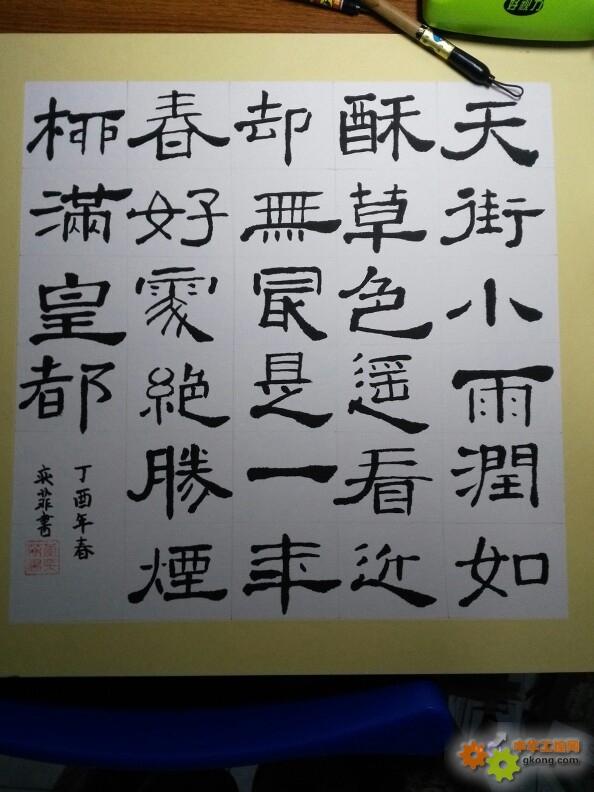 天街小雨潤如
酥草色遙看近
却無最是一年
春好處絶勝煙
柳滿皇都
丁酉年春
菲書
好视力
中华工控网
gkong.com